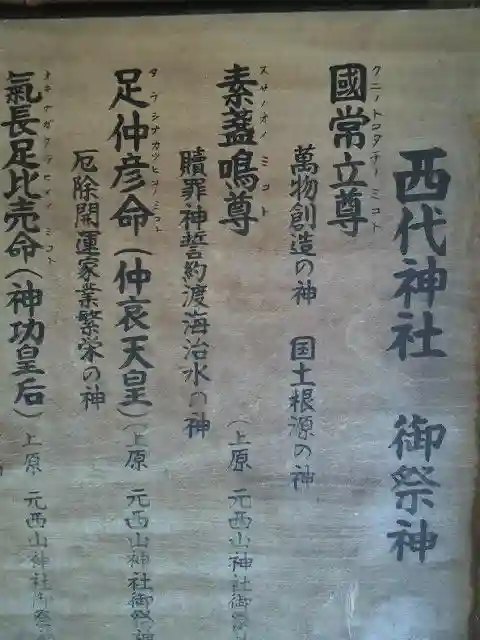 西代神社 御祭神
國常立尊
クニノトコタチノミコト
萬物創造の神 国土根源の神
素盞鳴尊
スサノオノミコト
贖罪神誓約渡海治水の神
(上原 元西山神社御祭
足仲彦命(仲哀天皇)(上原 元西山神社御祭神
タラシナカツヒコノミコト
厄除開運家業繁栄の神
氣長足比売命(神功皇后)上原 元西山神社御祭
オキナガタラヒメノミコト